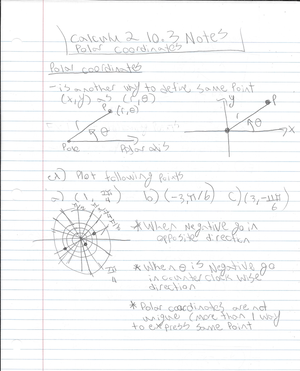 Calculus 2 10.3 Notes
Polar coordinates
Polar coordinates
- is another way to define same point
(x,y) as (r,θ)
P
(r,θ)
r
θ
Pole
Polar axis
y
P
r
θ
x
ex) Plot following points
a) (1, 5π/4) b) (-3, π/6) c) (3, -11π/6)
* When negative go in
opposite direction
* When θ is negative go
in counter clock wise
direction
* Polar coordinates are not
unique (more than 1 way)
to express same point